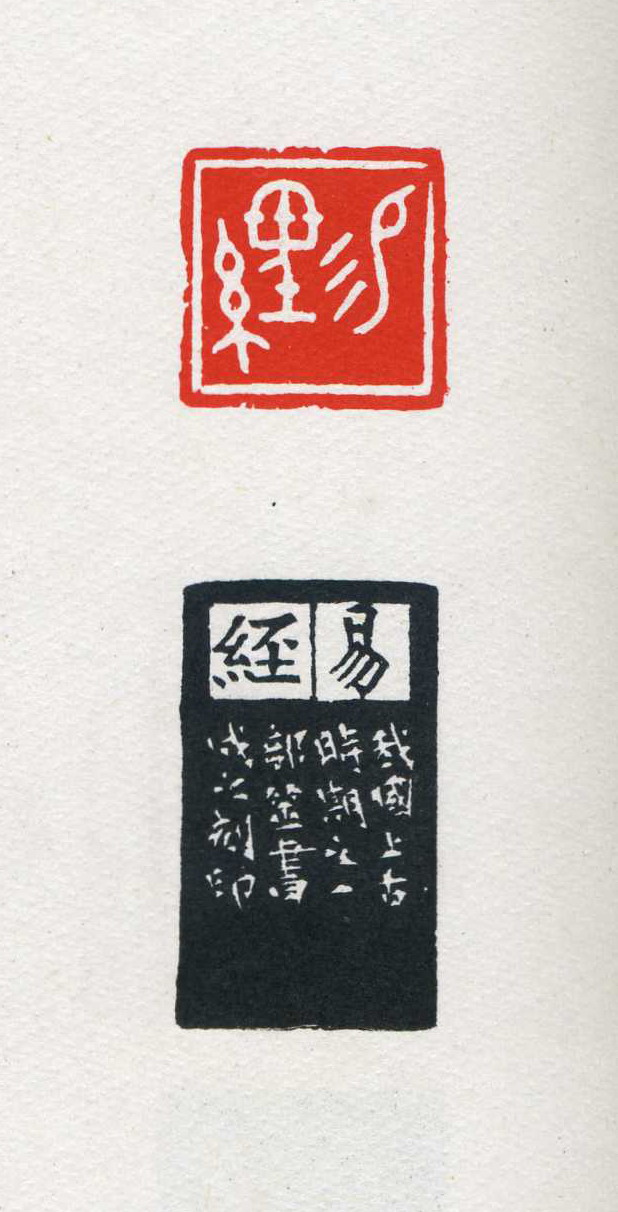 易經
易經
我國上古
時期之一
部筮書
成之刻印